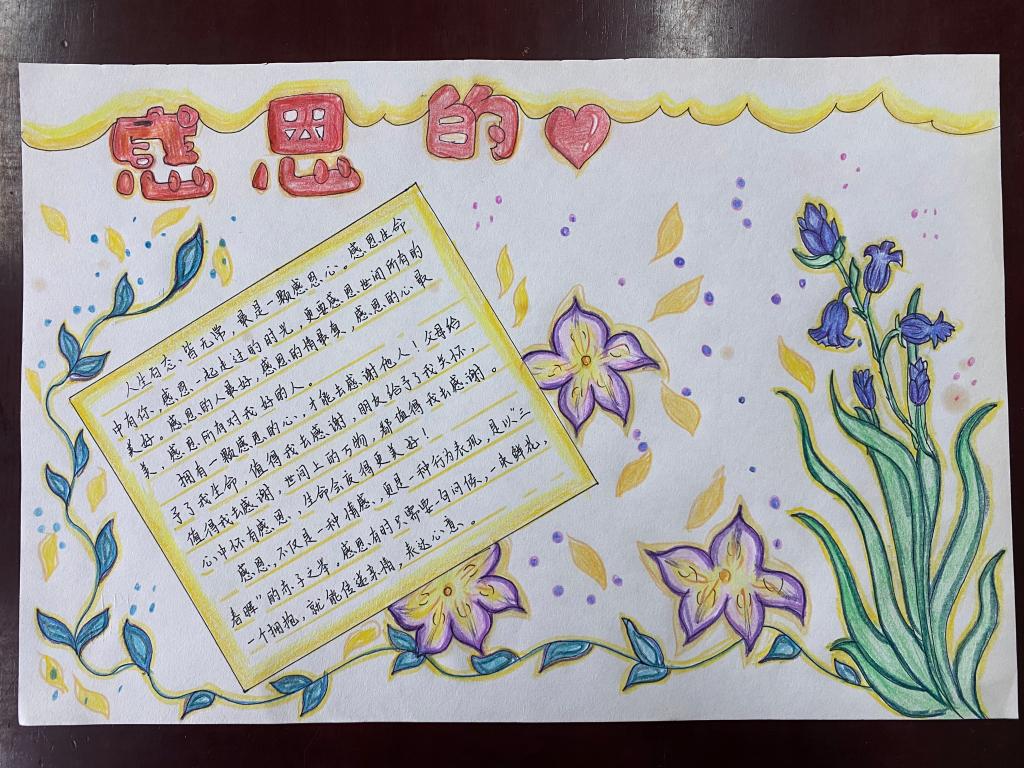 感恩的
人生百态、皆无常,最是一颗感恩心。感恩生命
中有你,感恩一起走过的时光,更要感恩世间所有的
美好。感恩的人最好,感恩的情最真,感恩的心最
美,感恩所有对我好的人。
拥有一颗感恩的心,才能去感谢他人!父母给
予了我生命,值得我去感谢,朋友给予了我关怀,
值得我去感谢,世间上的万物,都值得我去感谢。
心中怀有感恩,生命会变得更美好!
感恩,不仅是一种情感,更是一种行为表现,是以“三
春晖”的赤子之举。感恩有时只需要一句问候,一束鲜花,
一个拥抱,就能传递亲情,表达心意。